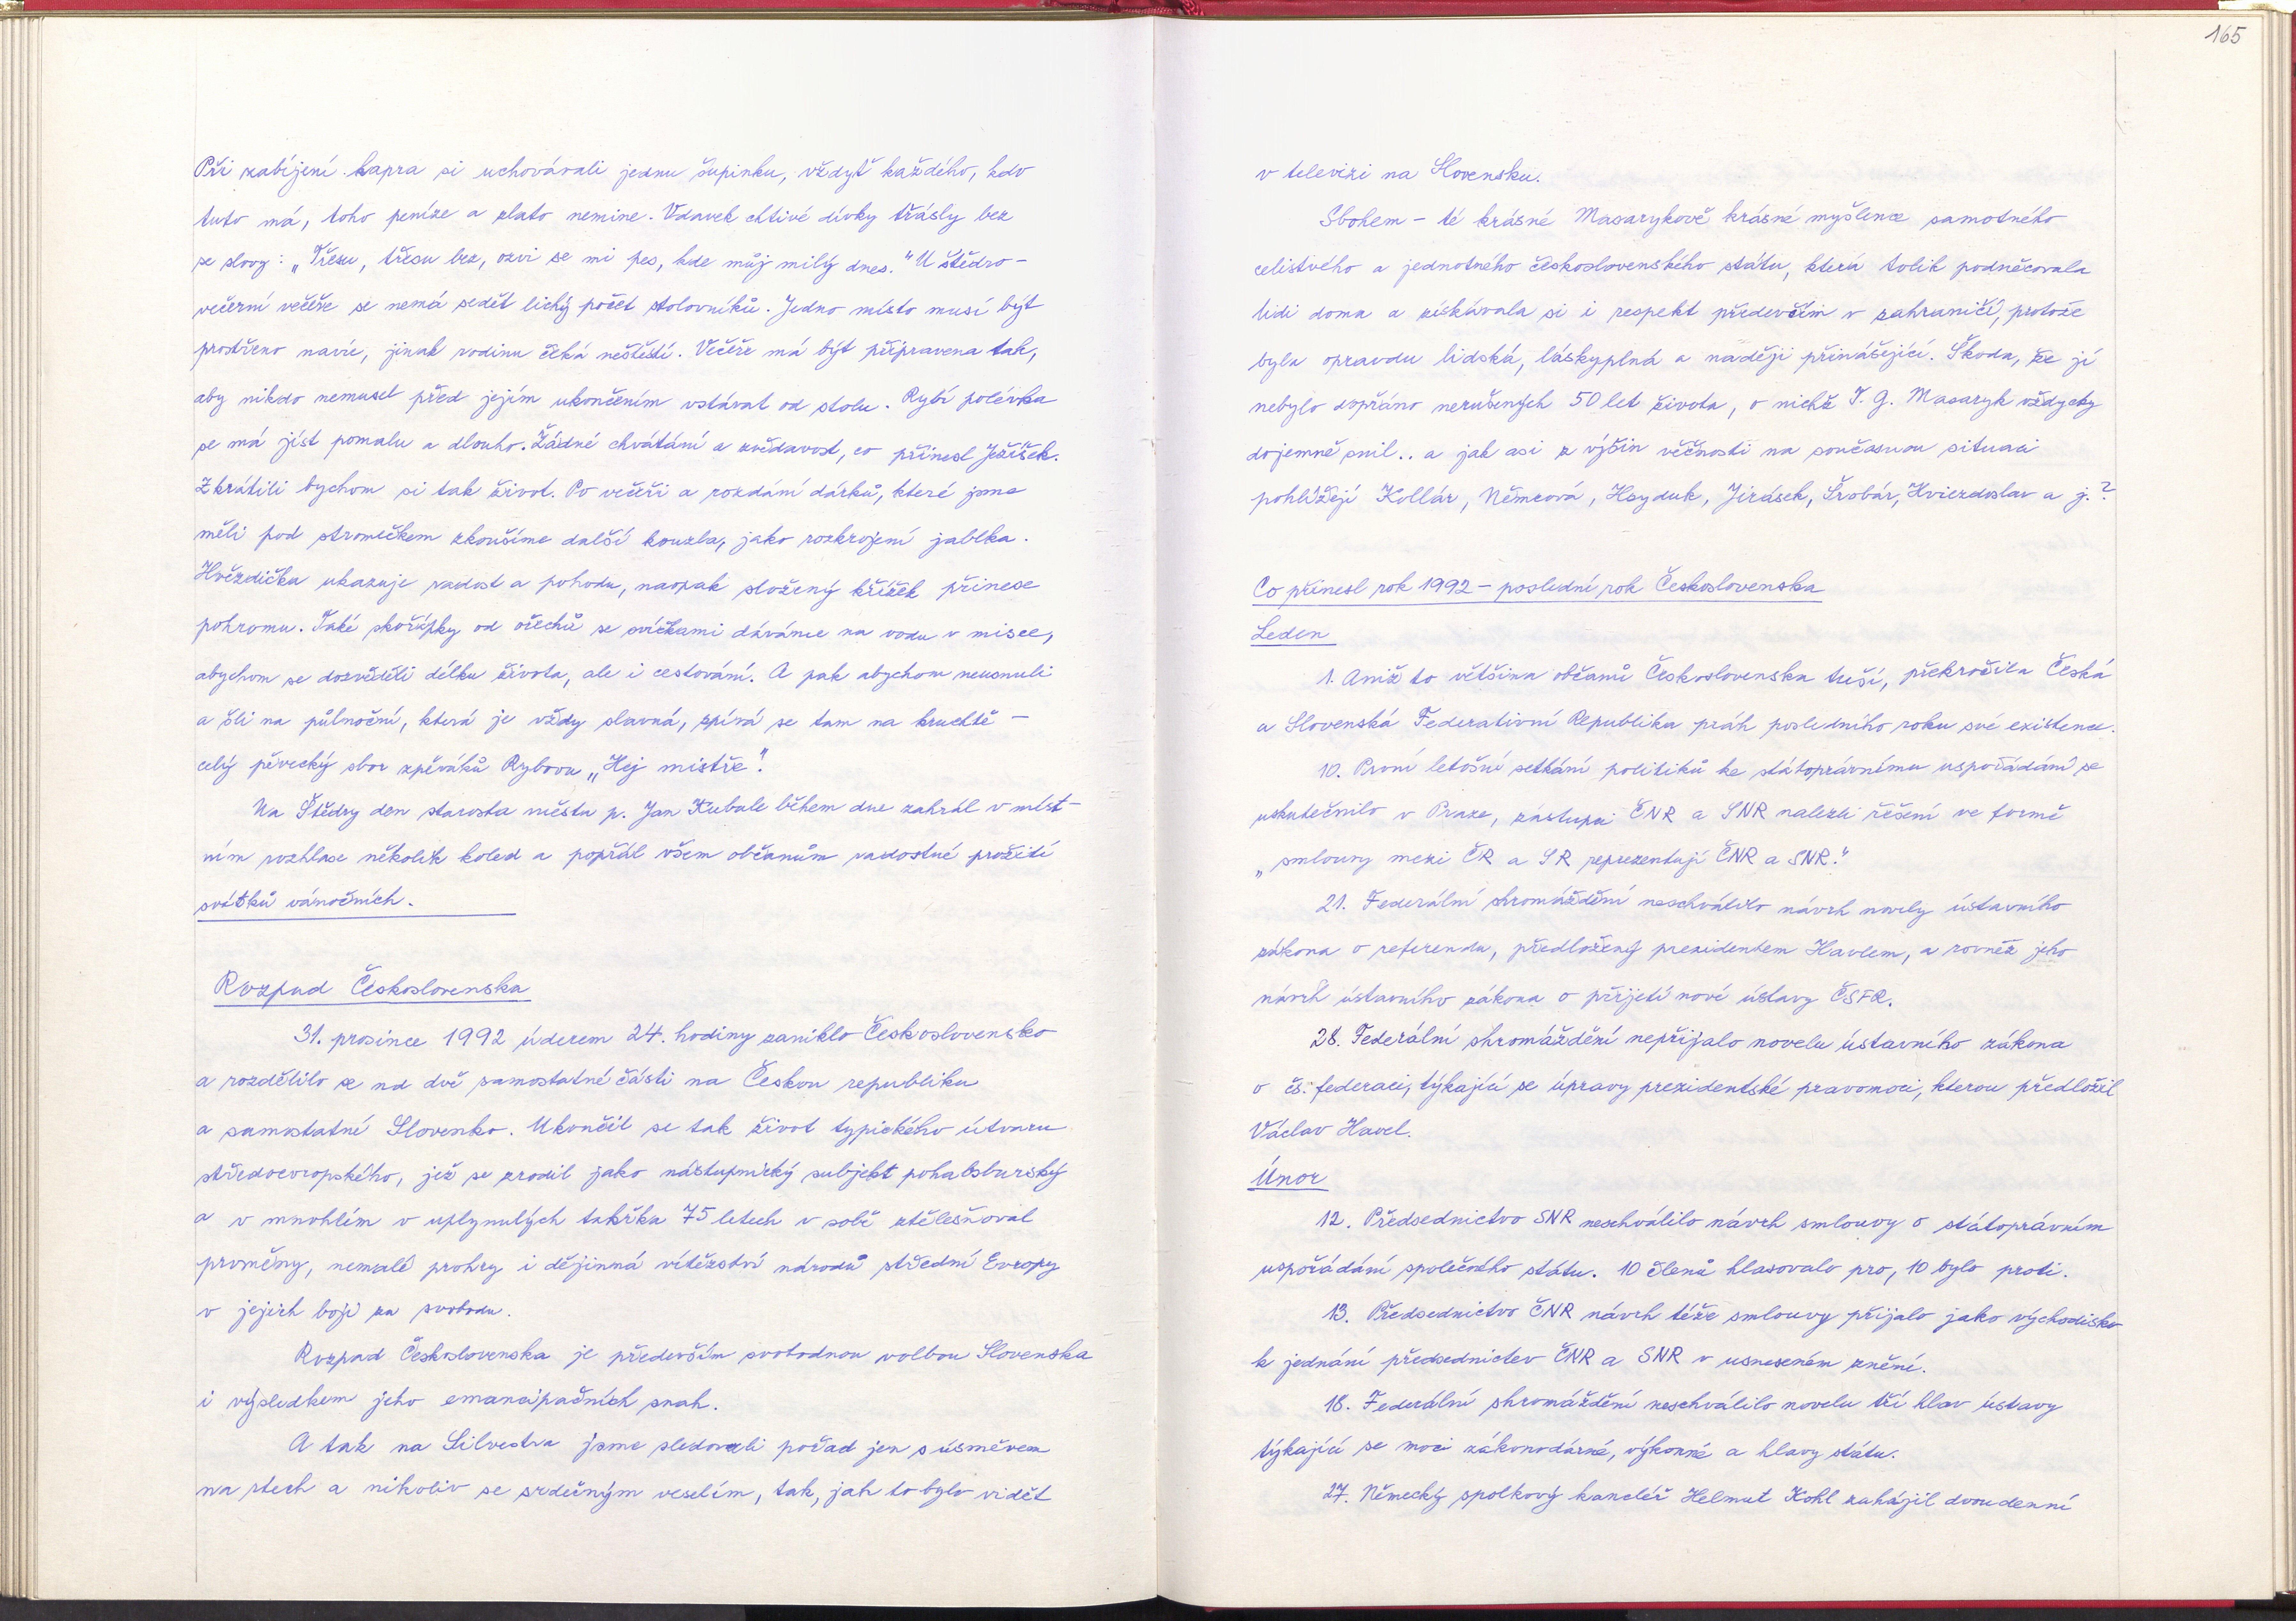 Při zabíjení kapra si uchovávali jednu šupinku, vždyť každého, kdo
tuto má, toho peníze a zlato nemine. Vdavek chtivé dívky třásly bez
se slovy: „Třesu, třesu bez, ozvi se mi pes, kde můj milý dnes." U štědro-
večerní večeře se nemá sedět lichý počet stolovníků. Jedno místo musí být
prostřeno navíc, jinak rodinu čeká neštěstí. Večeře má být připravena tak,
aby nikdo nemusel před jejím ukončením vstávat od stolu. Rybí polévka
se má jíst pomalu a dlouho. Žádné chvátání a zvědavost, co přinesl Ježíšek.
Zkrátili bychom si tak život. Po večeři a rozdání dárků, které jsme
měli pod stromečkem zkoušíme další kouzla, jako rozkrojení jablka.
Hvězdička ukazuje radost a pohodu, naopak složený křížek přinese
pohromu. Také skořápky od ořechů se svíčkami dáváme na vodu v misce,
abychom se dozvěděli délku života, ale i cestování. A pak abychom neusnuli
a šli na půlnoční, která je vždy slavná, zpívá se tam na kruchtě -
celý pěvecký sbor zpěváků Rybovu „Hej mistře".
Na Štědrý den starosta města p. Jan Kubale během dne zahrál v míst-
ním rozhlase několik koled a popřál všem občanům radostné prožití
svátků vánočních.
Rozpad Československa
31. prosince 1992 úderem 24. hodiny zaniklo Československo
a rozdělilo se na dvě samostatné části na Českou republiku
a samostatné Slovenko. Ukončil se tak život typického útvaru
středoevropského, jež se zrodil jako nástupnický subjekt pohabsburský
a v mnohlém v uplynulých takřka 75 letech v sobě ztělesňoval
proměny, nemalé prohry i dějinná vítězství národů střední Evropy
v jejich boji za svobodu.
Rozpad Československa je především svobodnou volbou Slovenska
i výsledkem jeho emancipačních snah.
A tak na Silvestra jsme sledovali pořad jen s úsměvem
na rtech a nikoliv se srdečným veselím, tak, jak to bylo vidět
165
v televizi na Slovensku.
Sbohem - té krásné Masarykově krásné myšlence samotného
celistvého a jednotného československého státu, která tolik podněcovala
lidi doma a získávala si i respekt předevčím v zahraničí, protože
byla opravdu lidská, láskyplná a naději přinášející. Škoda, že jí
nebylo dopřáno nerušených 50 let života, o nichž T. G. Masaryk vždycky
dojemně snil.. a jak asi z výšin věčnosti na současnou situaci
pohlížejí Kollár, Němcová, Heyduk, Jirásek, Šrobár, Hviezdoslav a j.?
Co přinesl rok 1992 - poslední rok Československa
Leden
1. Aniž to většina občanů Československa tuší, překročila Česká
a Slovenská Federativní Republika práh posledního roku své existence.
10. První letošní setkání politiků ke státoprávnímu uspořádání se
uskutečnilo v Praze, zástupci ČNR a SNR nalezli řešení ve formě
„smlouvy mezi ČR a SR reprezentují ČNR a SNR."
21. Federální shromáždění neschválilo návrh novely ústavního
zákona o referendu, předložený prezidentem Havlem, a rovněž jeho
návrh ústavního zákona o přijetí nové ústavy ČSFR.
28. Federální shromáždění nepřijalo novelu ústavního zákona
o čs. federaci, týkající se úpravy prezidentské pravomoci, kterou předložil
Václav Havel.
Únor
12. Předsednictvo SNR neschválilo návrh smlouvy o státoprávním
uspořádání společného státu. 10 členů hlasovalo pro, 10 bylo proti.
13. Předsednictvo ČNR návrh téže smlouvy přijalo jako východisko
k jednání předsednictev ČNR a SNR v usneseném znění.
18. Federální shromáždění neschválilo novelu tří hlav ústavy
týkající se moci zákonodárné, výkonné a hlavy státu.
27. Německý spolkový kancléř Helmut Kohl zahájil dvoudenní